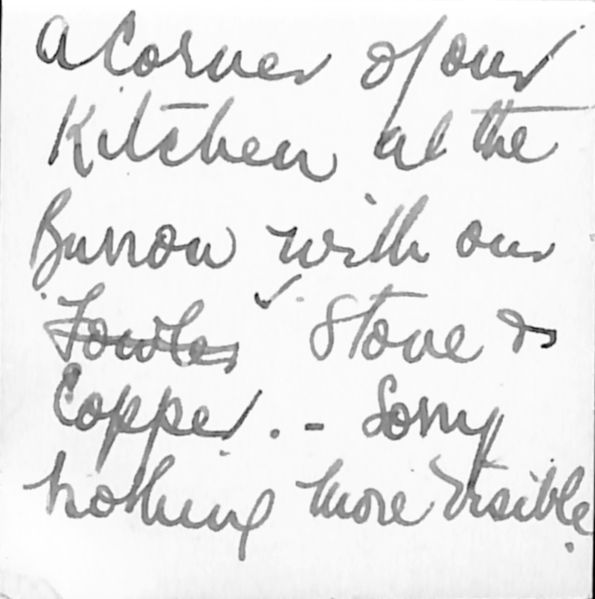 a Corner of our
Kitchen at the
Burrow with our
Fowles Stove &
Copper. - Sorry
nothing more visible.